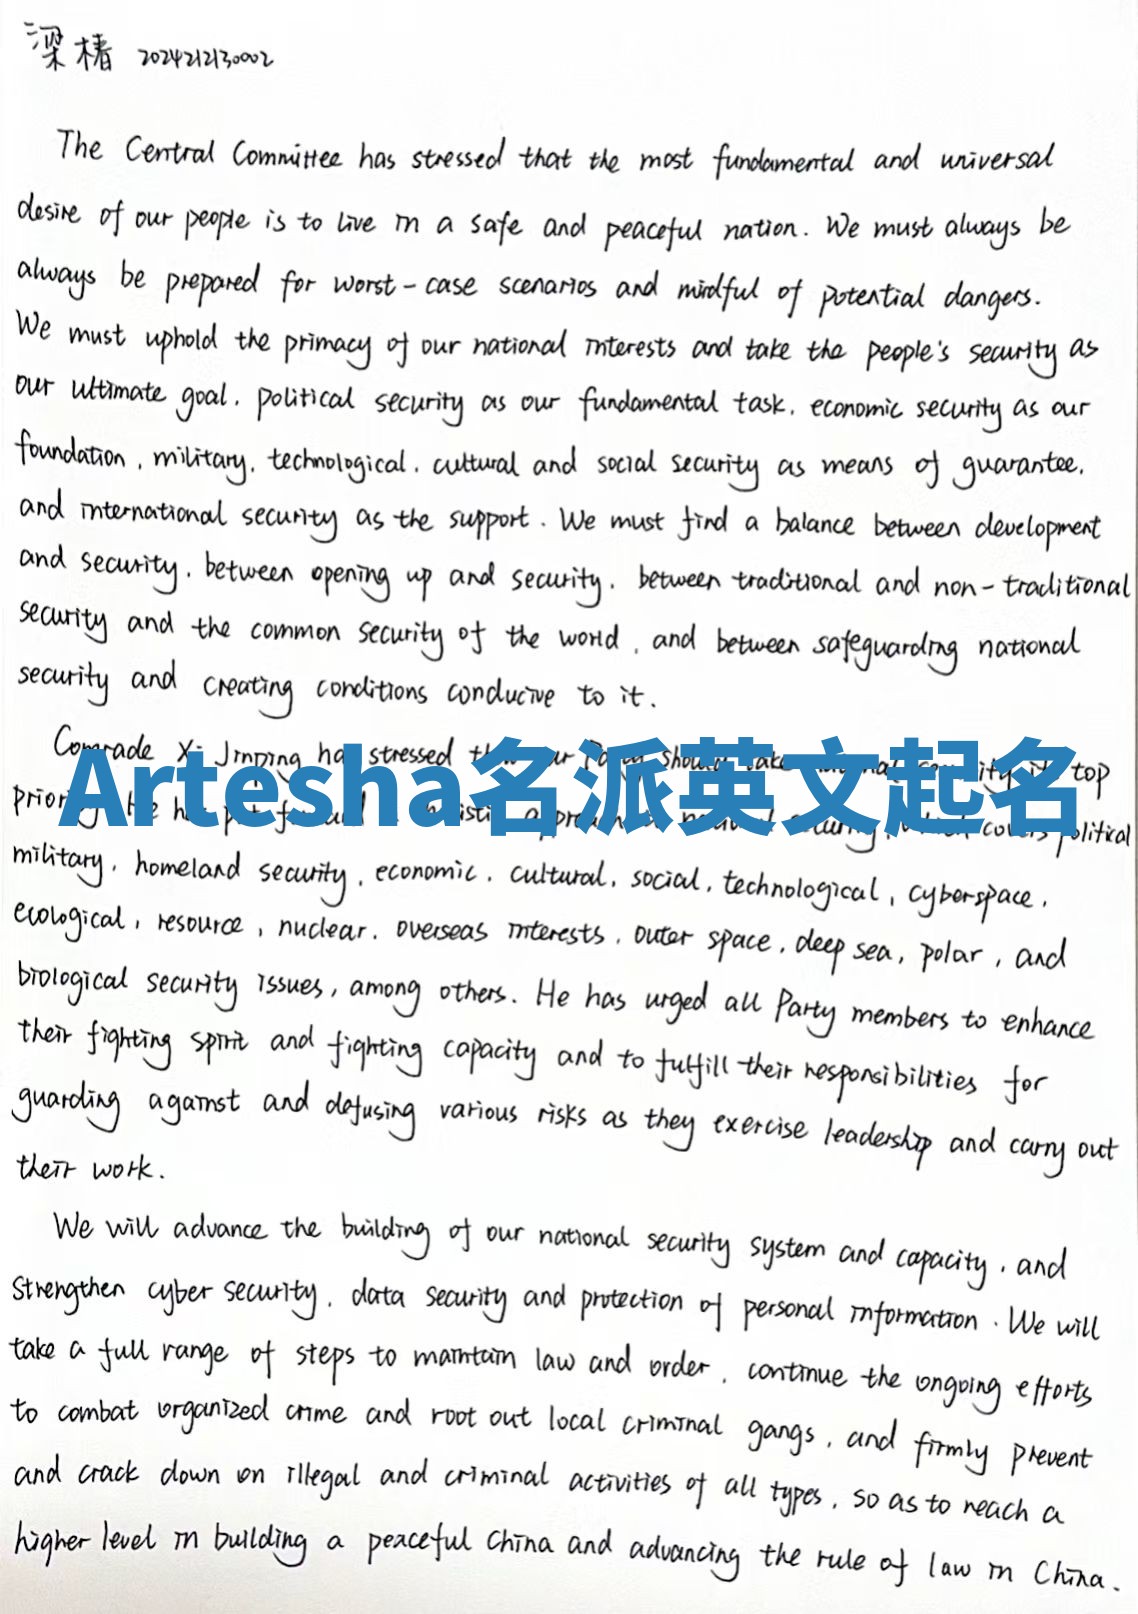 梁楮 2024212130002
The Central Committee has stressed that the most fundamental and universal
desire of our people is to live in a safe and peaceful nation. We must always be
always be prepared for worst-case scenarios and mindful of potential dangers.
We must uphold the primacy of our national interests and take the people's security as
our ultimate goal, political security as our fundamental task, economic security as our
foundation, military, technological, cultural and social security as means of guarantee,
and international security as the support. We must find a balance between development
and security, between opening up and security, between traditional and non-traditional
security and the common security of the world, and between safeguarding national
security and creating conditions conducive to it.
Comrade Xi Jinping has stressed our Party should take security its top
Artesha名派英文起名
priority He has put forward holistic approach national security, which covers political
military, homeland security, economic, cultural, social, technological, cyberspace,
ecological, resource, nuclear, overseas interests, outer space, deep sea, polar, and
biological security issues, among others. He has urged all Party members to enhance
their fighting spirit and fighting capacity and to fulfill their responsibilities for
guarding against and defusing various risks as they exercise leadership and carry out
their work.
We will advance the building of our national security system and capacity, and
strengthen cyber security, data security and protection of personal information. We will
take a full range of steps to maintain law and order, continue the ongoing efforts
to combat organized crime and root out local criminal gangs, and firmly prevent
and crack down on illegal and criminal activities of all types, so as to reach a
higher level in building a peaceful China and advancing the rule of law in China.